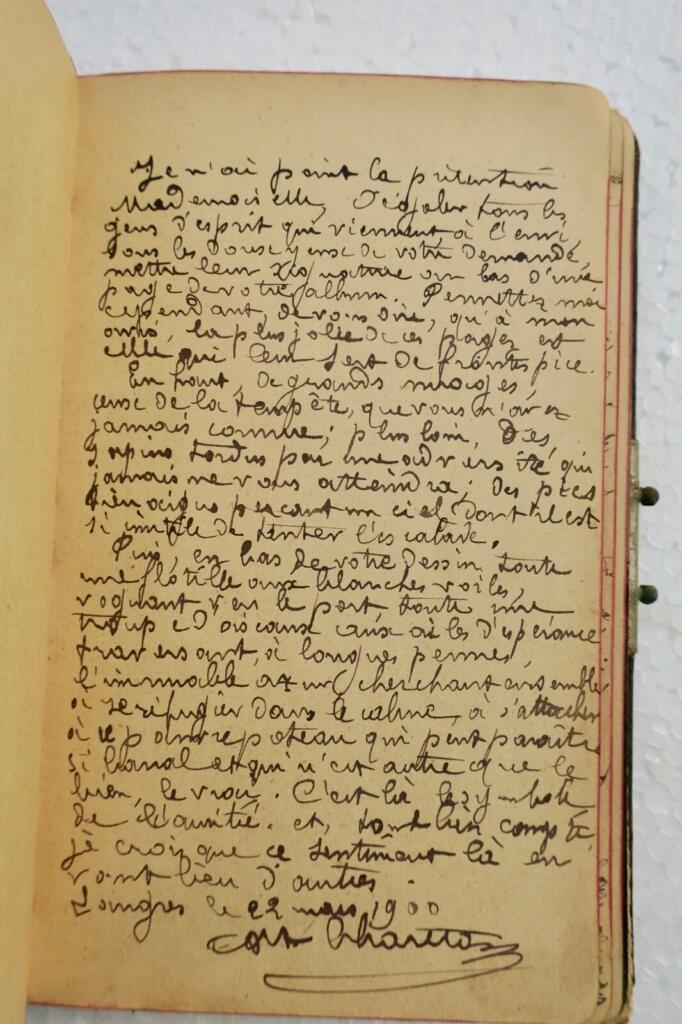 Je n'ai point la prétention
Mademoiselle, d'égaler tous les
gens d'esprit qui viennent à l'envi,
sous les doux yeux de votre demande,
mettre leur signature au bas d'une
page de votre album. Permettez moi
cependant, de vous dire, qu'à mon
avis, la plus jolie de ces pages est
celle qui leur sert de frontispice.
En haut, de grands nuages,
ceux de la tempête, que vous n'avez
jamais connue; plus loin, des
sapins tordus par une adversité qui
jamais ne vous atteindra; des pics
perçant un ciel dont il est
si inutile de tenter l'escalade.
Puis, en bas de votre dessin toute
une flotille aux blanches voiles,
voguant vers le port toute une
troupe d'oiseaux aux ailes d'espérance
traversant, à longues pennes,
l'immuable azur cherchant ensemble
à se réfugier dans le calme, à s'attacher
à ce pauvre poteau qui peut paraître
si banal et qui n'est autre que le
bien, le vrai. C'est là le symbole
de l'amitié. et, tout bien compté,
je crois que ce sentiment là en
vaut bien d'autres.
Langres le 22 mars 1900